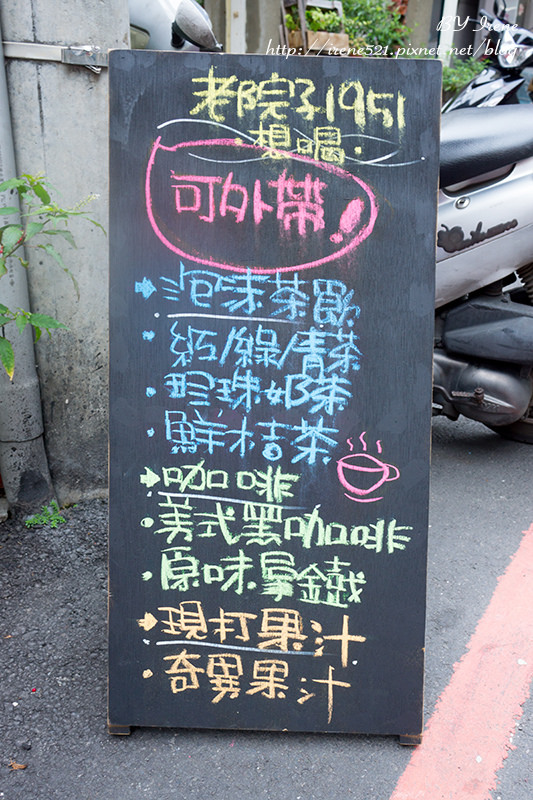 BY Irene
http://irene521.pixnet.net/blog
老院子1951
·想喝·
可外帶！
→泡沫茶飲
·紅/綠/青茶
·珍珠奶茶
·鮮桔茶
→咖啡
·美式黑咖啡
·原味拿鐵
→現打果汁
·奇異果汁